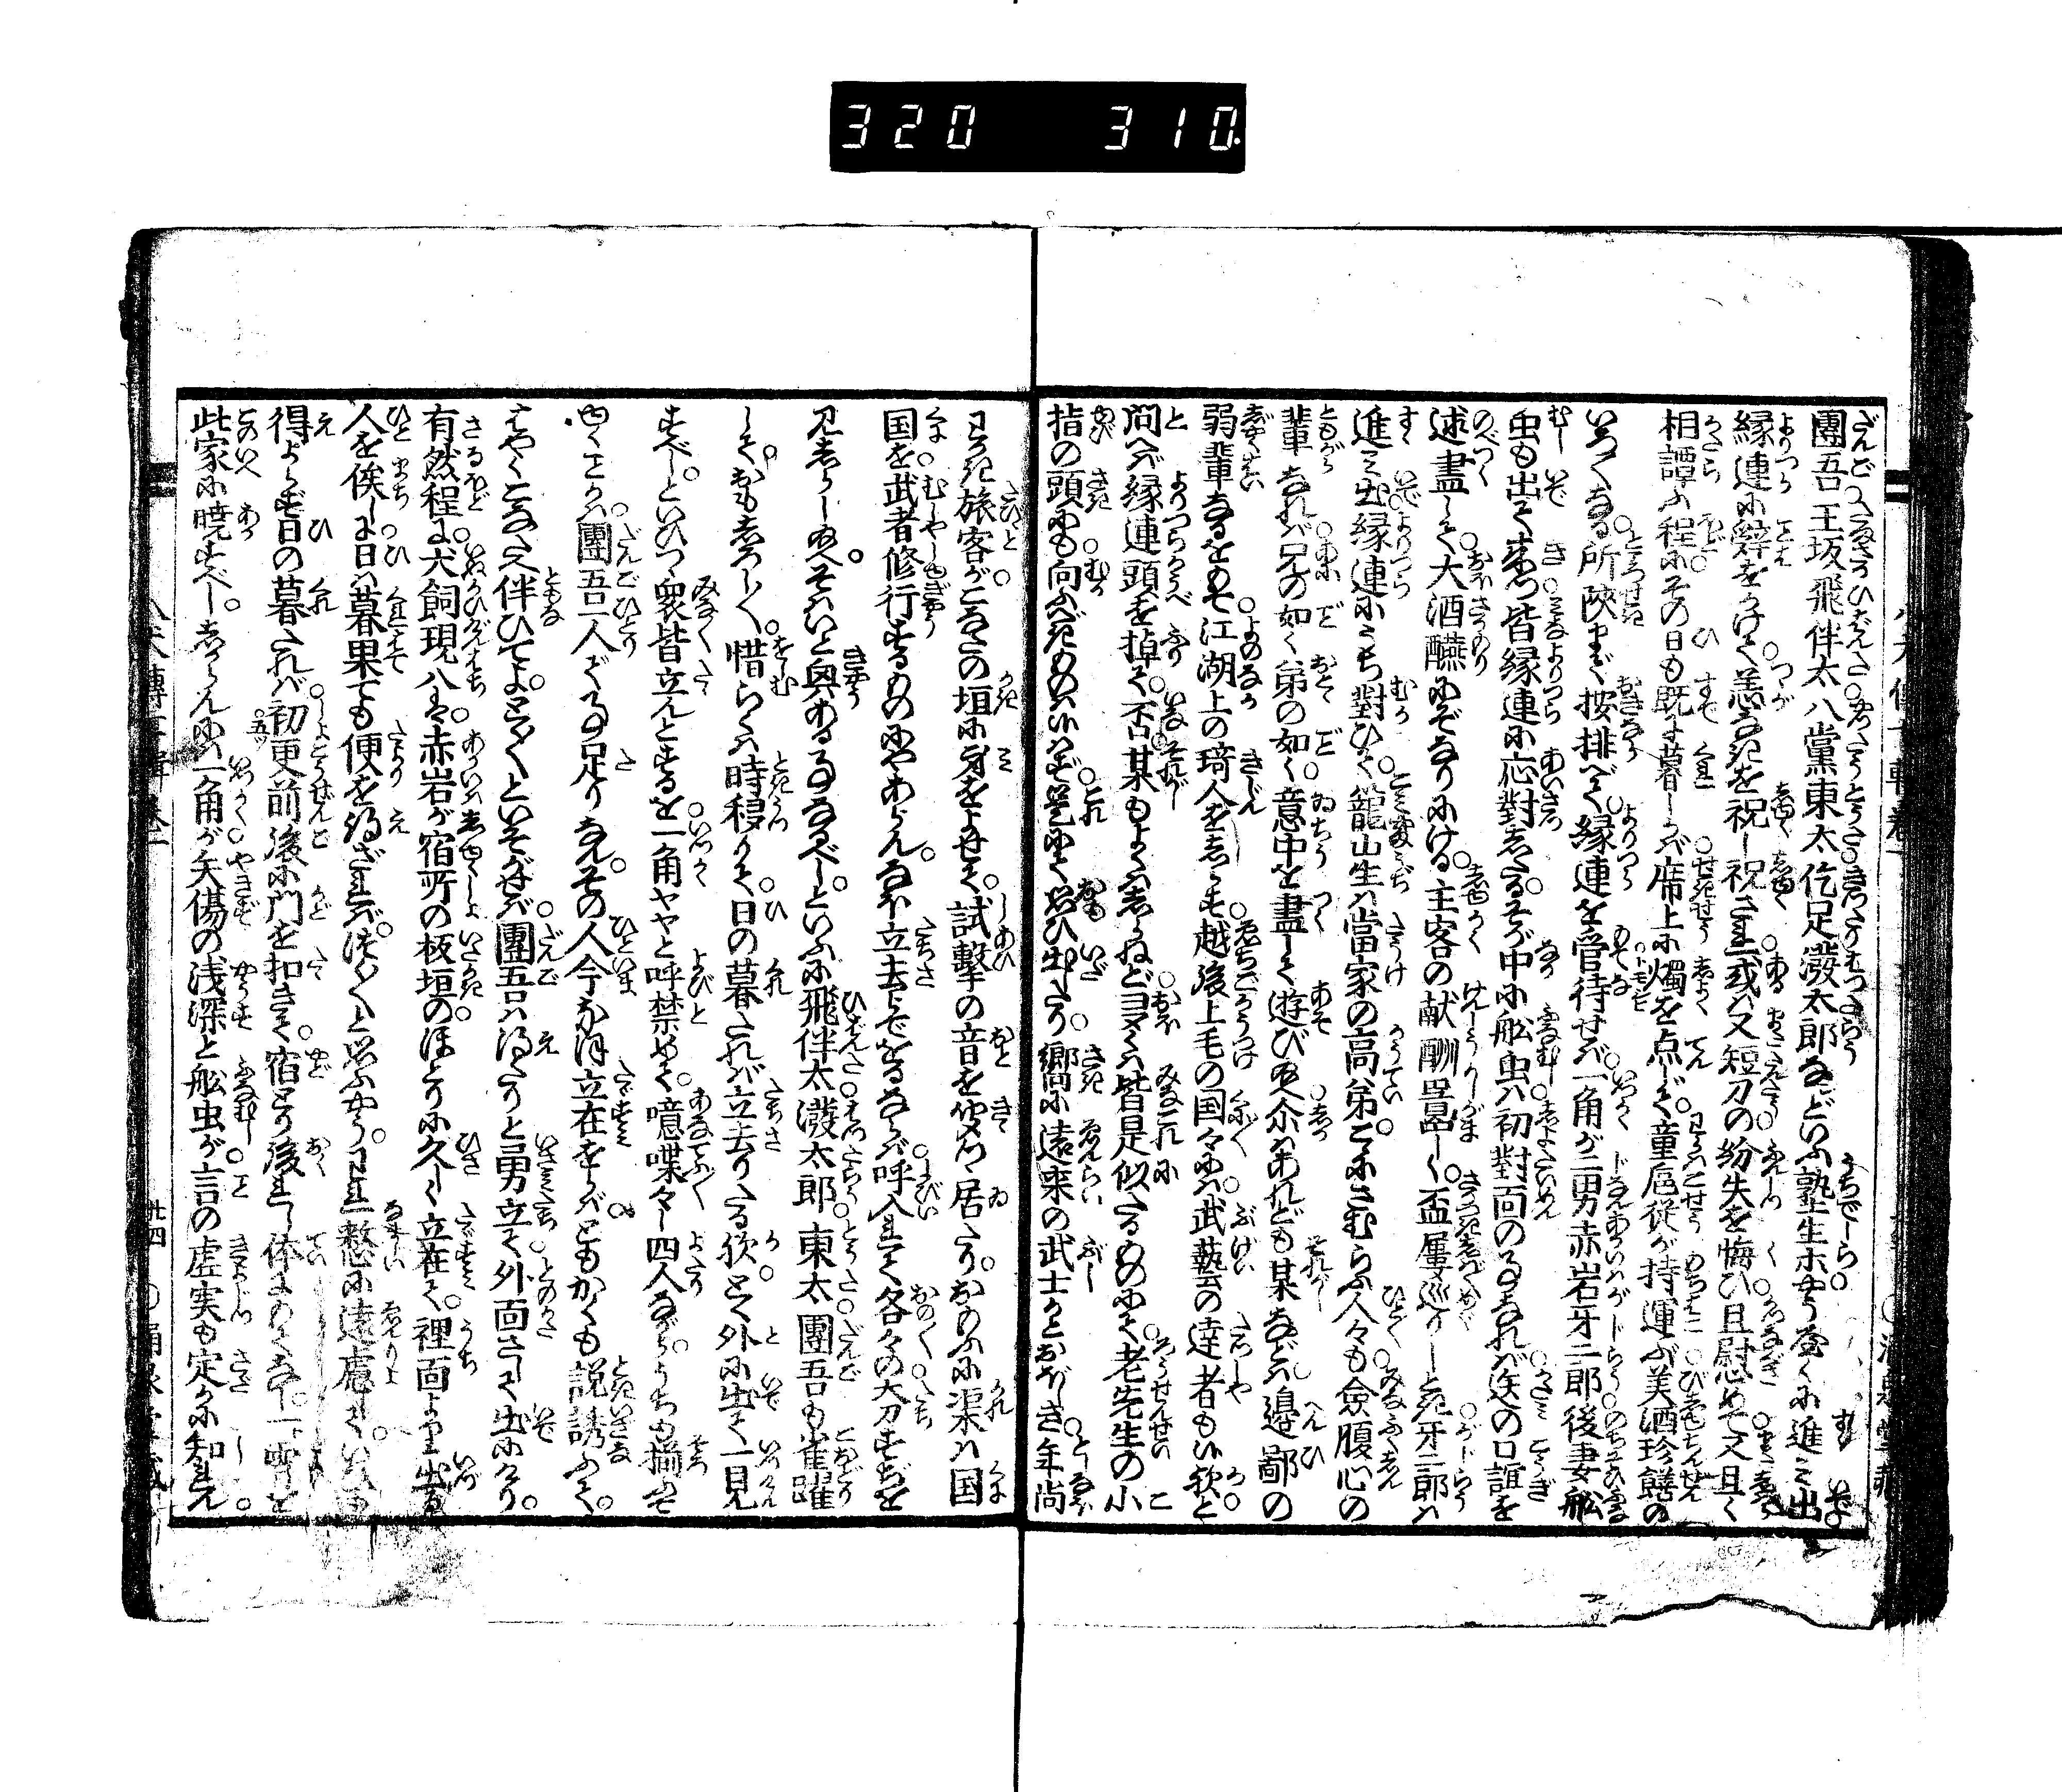 320 310.
團吾玉坂飛伴太八黨東太仡足溌太郎などいふ塾生ホやう登々に進み出
縁連に辞をかけて恙なきを祝し祝され或は又短刀の紛失を悔ひ且慰めて又且く
相譚ふ程にその日も既に暮しかば席上に燭を点じて童扈従が持運ぶ美酒珍饍の
いろ〳〵なる所陜まで按排べて縁連を管待せば一角が二男赤岩牙二郎後妻舩
虫も出て来つ皆縁連に応對したるそが中に舩虫は初對面の事なれば送の口誼を
述盡して大酒醼にぞなりにける主客の献酬囂しく一盃屢巡りしとき牙二郎は
進み出縁連にうち對ひて籠山生は當家の高弟こゝにさむらふ人々も僉腹心の
輩なれば兄の如く弟の如く意中を盡して遊び給へ介はあれども某などは邊鄙の
弱輩なるをもて江湖上の琦人をしらず越後上毛の国々には武藝の達者もい歟と
問へば縁連頭を掉て否某もよくはしらねどヨク〳〵は皆是似たるものにて老先生の小
指の頭にも向ふべきものはいはず是にて思ひ出たり嚮に遠来の武士とおぼしき年尚
わかき旅客がこなたの垣に身をよせて試撃の音を聞て居たりおのふに渠は国
国を武者修行するものにやあらんなほ立去らでをるならば呼入れて各々の大刀すぢを
見しらし給へそいと興ある事なるべしといふに飛伴太溌太郎東太團吾も雀躍
しておもしろし〳〵惜らくは時移りて日の暮たれば立去りたる歟とく外に出て一見
すべしといひつゝ衆皆立んとするを一角ヤヤと呼禁めて噫喋々し四人ながらうちも揃ふて
ゆくことかは團吾一人ぞ事足りなんその人今なほ立在をらばともかくも説誘ふて
はやくこなたへ伴ひてよとく〳〵といそがせば團吾は得たりと勇立て外面さして出にけり
有然程に犬飼現八は赤岩が宿所の板垣のほとりに久しく立在て裡面より出る
人を俟しに日は暮果ても便を得ざればつく〴〵と思ふやうわれ憖に遠慮していふ
得よらず日の暮たれば初更前後に門を扣きて宿とり後れし体にもてなし一霄を
此家に暁すべししからんには一角が矢傷の浅深と舩虫が言の虚実も定かに知れん
廿四